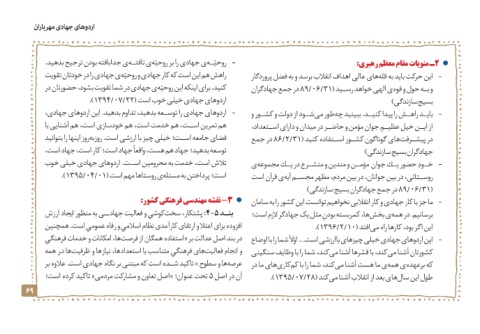 اردوهای جهادی مهریاران
۲ـ منویات مقام معظم رهبری:
- این حرکت باید به قله‌های عالی اهداف انقلاب برسد و به فضل پروردگار
و به حول و قوه‌ی الهی خواهد رسید (۸۹/۰۶/۳۱ در جمع جهادگران
بسیج سازندگی)
- باید راهش را پیدا کنید. ببینید چه‌طور می‌شود از دولت و کشور و
از این خیل عظیم جوان مؤمن و حاضر در میدان و دارای استعداد،
در پیشرفت‌های گوناگون کشور استفاده کنید (۸۶/۲/۳۱ در جمع
جهادگران بسیج سازندگی)
- خود حضور یک جوان مؤمن و متدین و متشرع در یک مجموعه‌ی
روستایی، در بین جوانان، در بین مردم، مظهر مجسم آیه‌ی قرآن است
(۸۹/۰۶/۳۱ در جمع جهادگران بسیج سازندگی)
- ما جز با کار جهادی و کار انقلابی نخواهیم توانست این کشور را به سامان
برسانیم. در همه‌ی بخش‌ها، کمربسته بودن مثل یک جهادگر لازم است؛
این اگر بود، کارها راه می‌افتد (۱۳۹۶/۲/۱۰).
- این اردوهای جهادی خیلی چیزهای باارزشی است... اولاً شما را با اوضاع
کشورتان آشنا می‌کند، با قشرها آشنا می‌کند، شما را با وظایف سنگینی
که برعهده‌ی همه‌ی ما هست آشنا می‌کند، شما را با کم‌کاری‌های ما در
طول این سال‌های بعد از انقلاب آشنا می‌کند (۱۳۹۵/۰۷/۲۸)
- روحیّه‌ی جهادی را بر روحیّه‌ی تافته‌ی جدابافته بودن ترجیح بدهید.
راهش هم این است که کار جهادی و روحیه‌ی جهادی را در خودتان تقویت
کنید. برای اینکه این روحیه‌ی جهادی در شما تقویت بشود، حضورتان در
اردوهای جهادی خیلی خوب است (۱۳۹۴/۰۷/۲۲).
- اردوهای جهادی را توسعه بدهید، تداوم بدهید. این اردوهای جهادی،
هم تمرین است، هم خدمت است، هم خودسازی است، هم آشنایی با
فضای جامعه است؛ خیلی چیز با ارزشی است. روزبه‌روز اینها را بتوانید
توسعه بدهید؛ جهاد هم هست، واقعاً جهاد است؛ کار است، جهاد است،
تلاش است، خدمت به محرومین است. اردوهای جهادی خیلی خوب
است؛ پرداختن به مسئله‌ی روستاها مهم است (۱۳۹۵/۰۴/۰۱).
۳ـ نقشه مهندسی فرهنگی کشور:
بند ۵-۴: پشتکار، سخت‌کوشی و فعالیت جهادی به منظور ایجاد ارزش
افزوده برای اعتلا و ارتقای کارآمدی نظام اسلامی و رفاه عمومی است. همچنین
در بند اصل عدالت بر «استفاده همگان از فرصت‌ها، امکانات و خدمات فرهنگی
و انجام فعالیت‌های فرهنگی متناسب با استعدادها، نیازها و ظرفیت‌ها در همه
عرصه‌ها و سطوح» تاکید شده است که مبتنی بر نگاه جهادی است. علاوه بر
آن در اصل ۵ تحت عنوان؛ «اصل تعاون و مشارکت مردمی» تاکید کرده است؛
۶۹